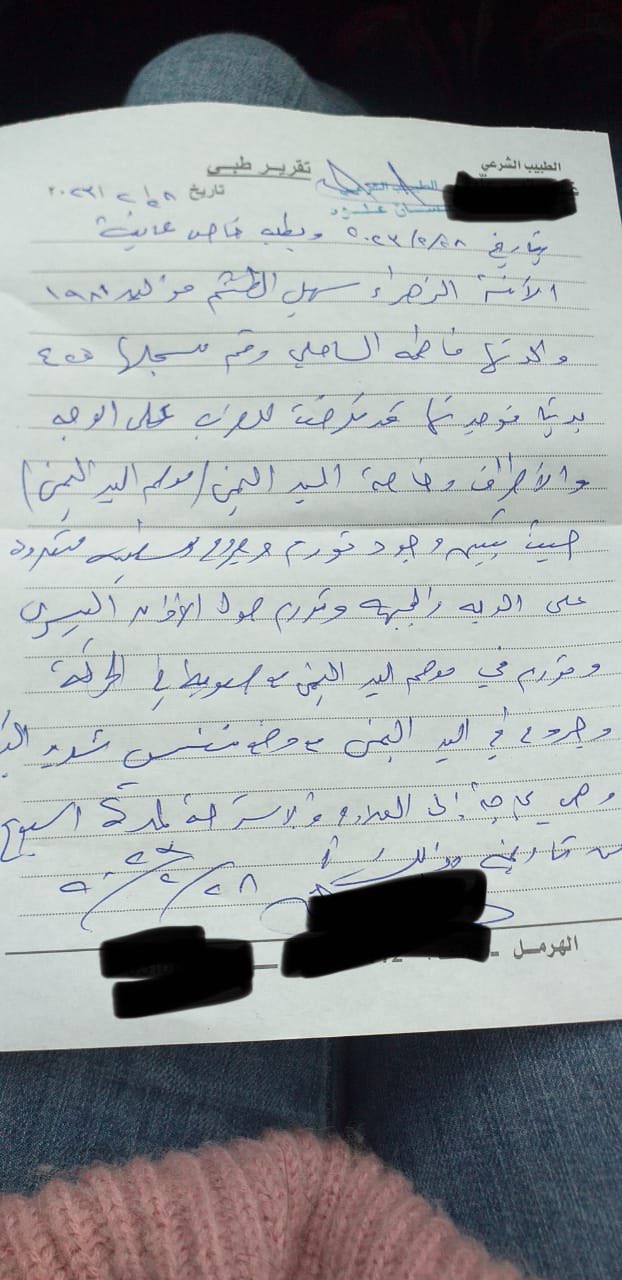 الطبيب الشرعي
تقرير طبي
تاريخ ٢٨/٢/٢٠٢٣
بتاريخ ٢٨/٢/٢٠٢٣ وبطلب خاص عاينت
الآنسة الزهراء سهيل الطشم مواليد ١٩٨١
والدتها فاطمة الساحلي ورقم سجلها
فوجدتها قد تعرضت للضرب على الوجه
والأطراف وخاصة اليد اليمنى (معصم اليد اليمنى)
حيث تبين وجود تورم وجروح سطحية متعددة
على الوجه والجبهة وتورم حول الأذن اليسرى
وتورم في معصم اليد اليمنى مع صعوبة في الحركة
وجروح في اليد اليمنى مع وضع نفسي شديد
وهي بحاجة إلى العلاج والاستراحة لمدة أسبوع
من تاريخه وذلك
٢٨/٢/٢٠٢٣
الهرمل -